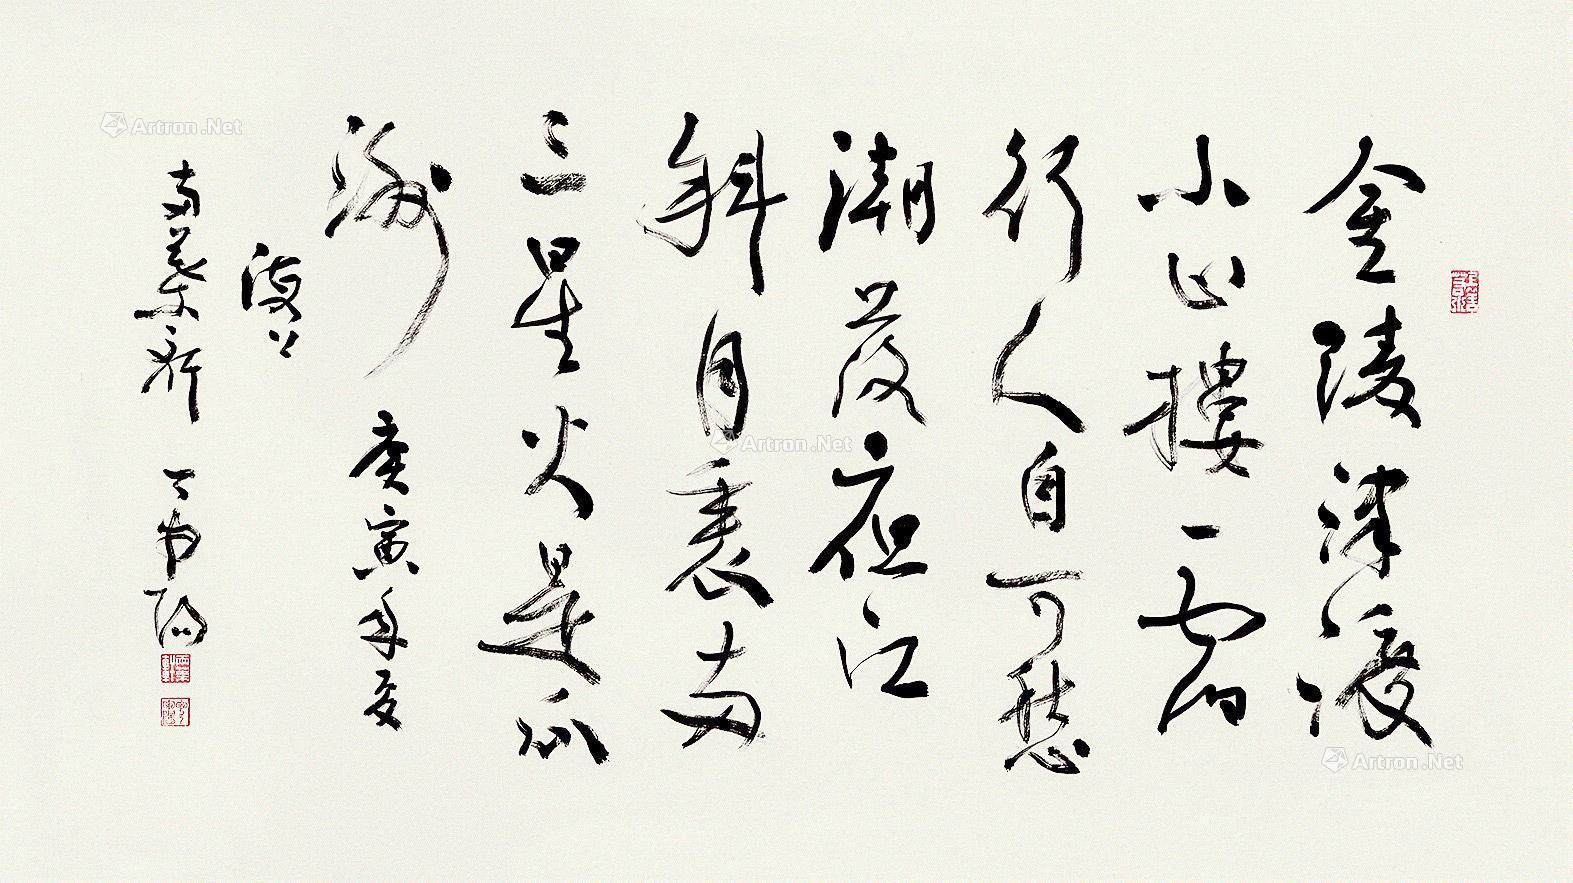 金陵津渡
小山樓一宿
行人自可愁
潮落夜江
斜月裏兩
三星火是瓜
洲 庚寅年夏
Artron.Net
Artron.Net
Artron.Net